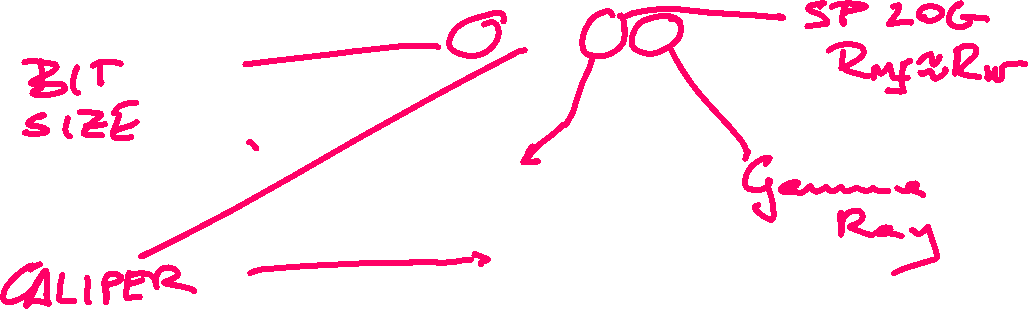 BIT
SIZE
SP LOG
Rmf≈Rw
Gamma
Ray
CALIPER